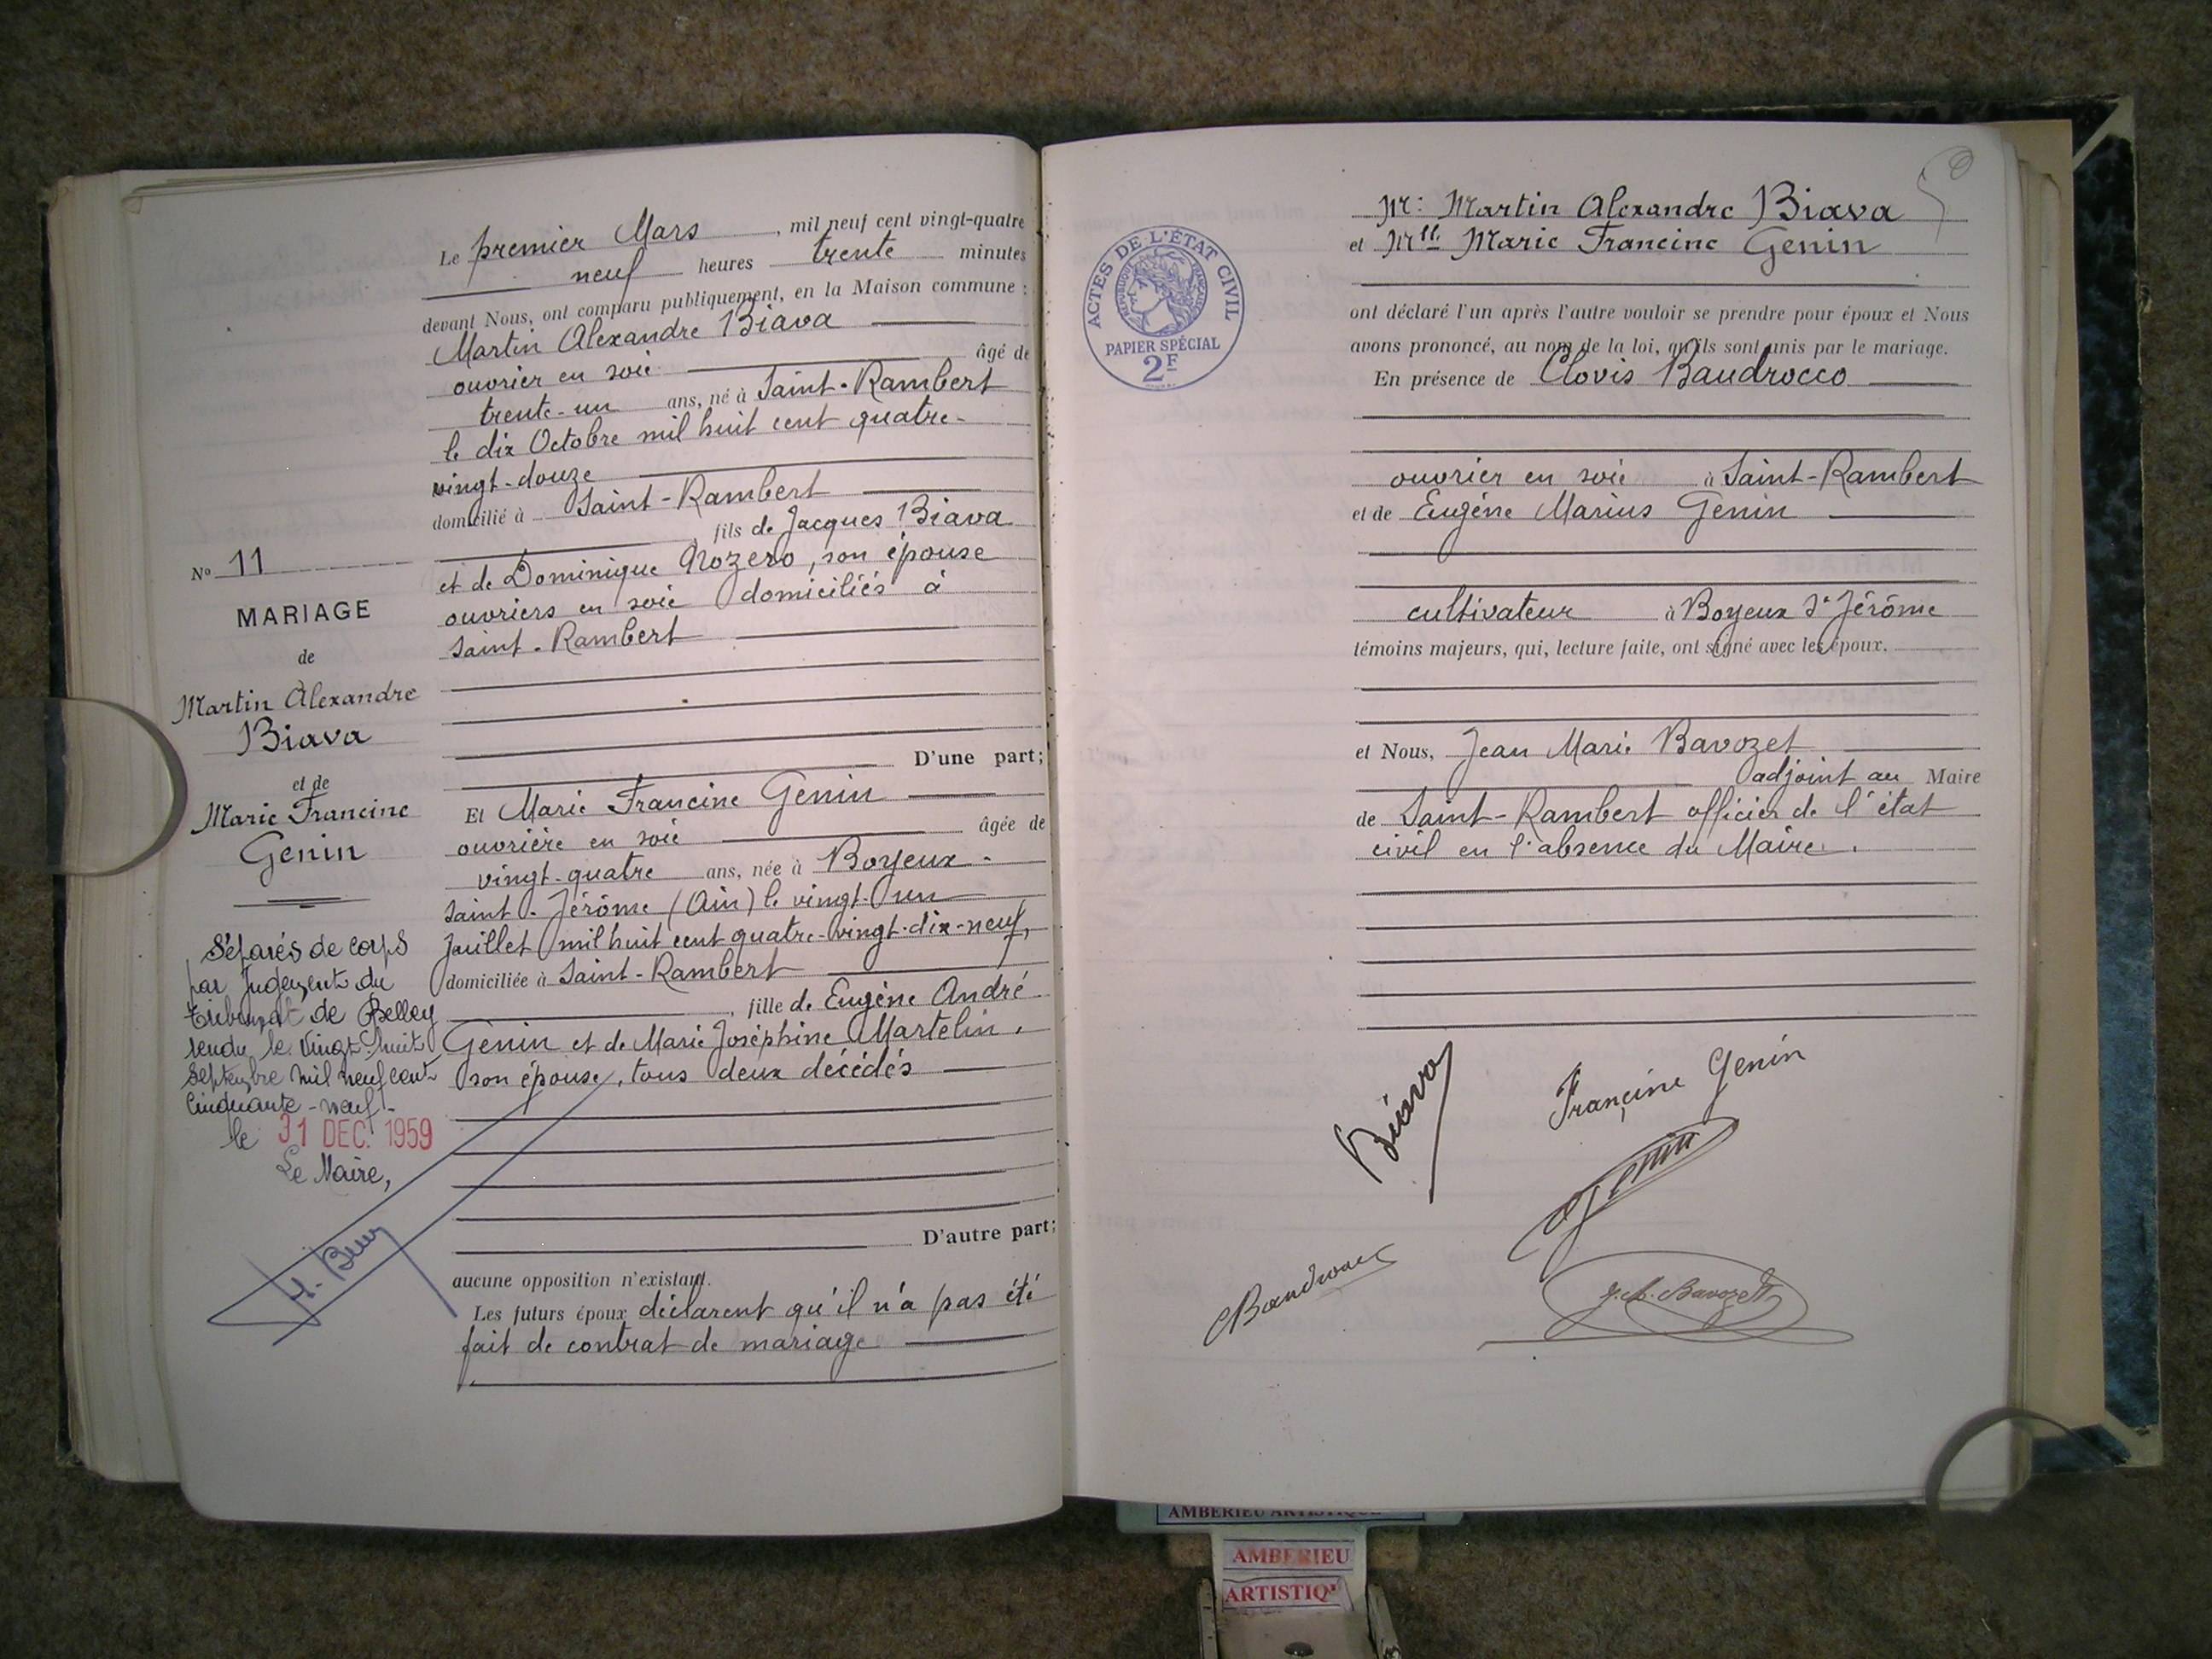 Le premier Mars, mil neuf cent vingt-quatre
neuf heures trente minutes
devant Nous, ont comparu publiquement, en la Maison commune :
Martin Alexandre Biava
ouvrier en soie âgé de
trente-un ans, né à Saint-Rambert
le dix Octobre mil huit cent quatre-
vingt-douze
domicilié à Saint-Rambert
, fils de Jacques Biava
et de Dominique Rozero, son épouse
ouvriers en soie domiciliés à
Saint-Rambert
D'une part;
Et Marie Francine Genin
ouvrière en soie âgée de
vingt-quatre ans, née à Boyeux-
Saint-Jérôme (Ain) le vingt-un
Juillet mil huit cent quatre-vingt-dix-neuf,
domiciliée à Saint-Rambert
, fille de Eugène André
Genin et de Marie Joséphine Martelin,
son épouse, tous deux décédés
D'autre part;
aucune opposition n'existant.
Les futurs époux déclarent qu'il n'a pas été
fait de contrat de mariage
No 11
MARIAGE
de
Martin Alexandre
Biava
et de
Marie Francine
Genin
Séparés de corps
par Jugement du
tribunal de Belley
rendu le vingt-huit
Septembre mil neuf cent
cinquante-neuf-
le 31 DEC. 1959
Le Maire,
ACTES DE L'ÉTAT CIVIL
RÉPUBLIQUE FRANÇAISE
PAPIER SPÉCIAL
2F
Mr: Martin Alexandre Biava
et Mlle Marie Francine Genin
ont déclaré l'un après l'autre vouloir se prendre pour époux et Nous
avons prononcé, au nom de la loi, qu'ils sont unis par le mariage.
En présence de Clovis Baudrocco
ouvrier en soie à Saint-Rambert
et de Eugène Marius Genin
cultivateur à Boyeux St Jérôme
témoins majeurs, qui, lecture faite, ont signé avec les époux.
et Nous, Jean Marie Bavozet
adjoint au Maire
de Saint-Rambert officier de l'état
civil en l'absence du Maire.
Biava
Francine Genin
Genin
J. M. Bavozet
AMBERIEU ARTISTIQUE
AMBERIEU
ARTISTIQ'